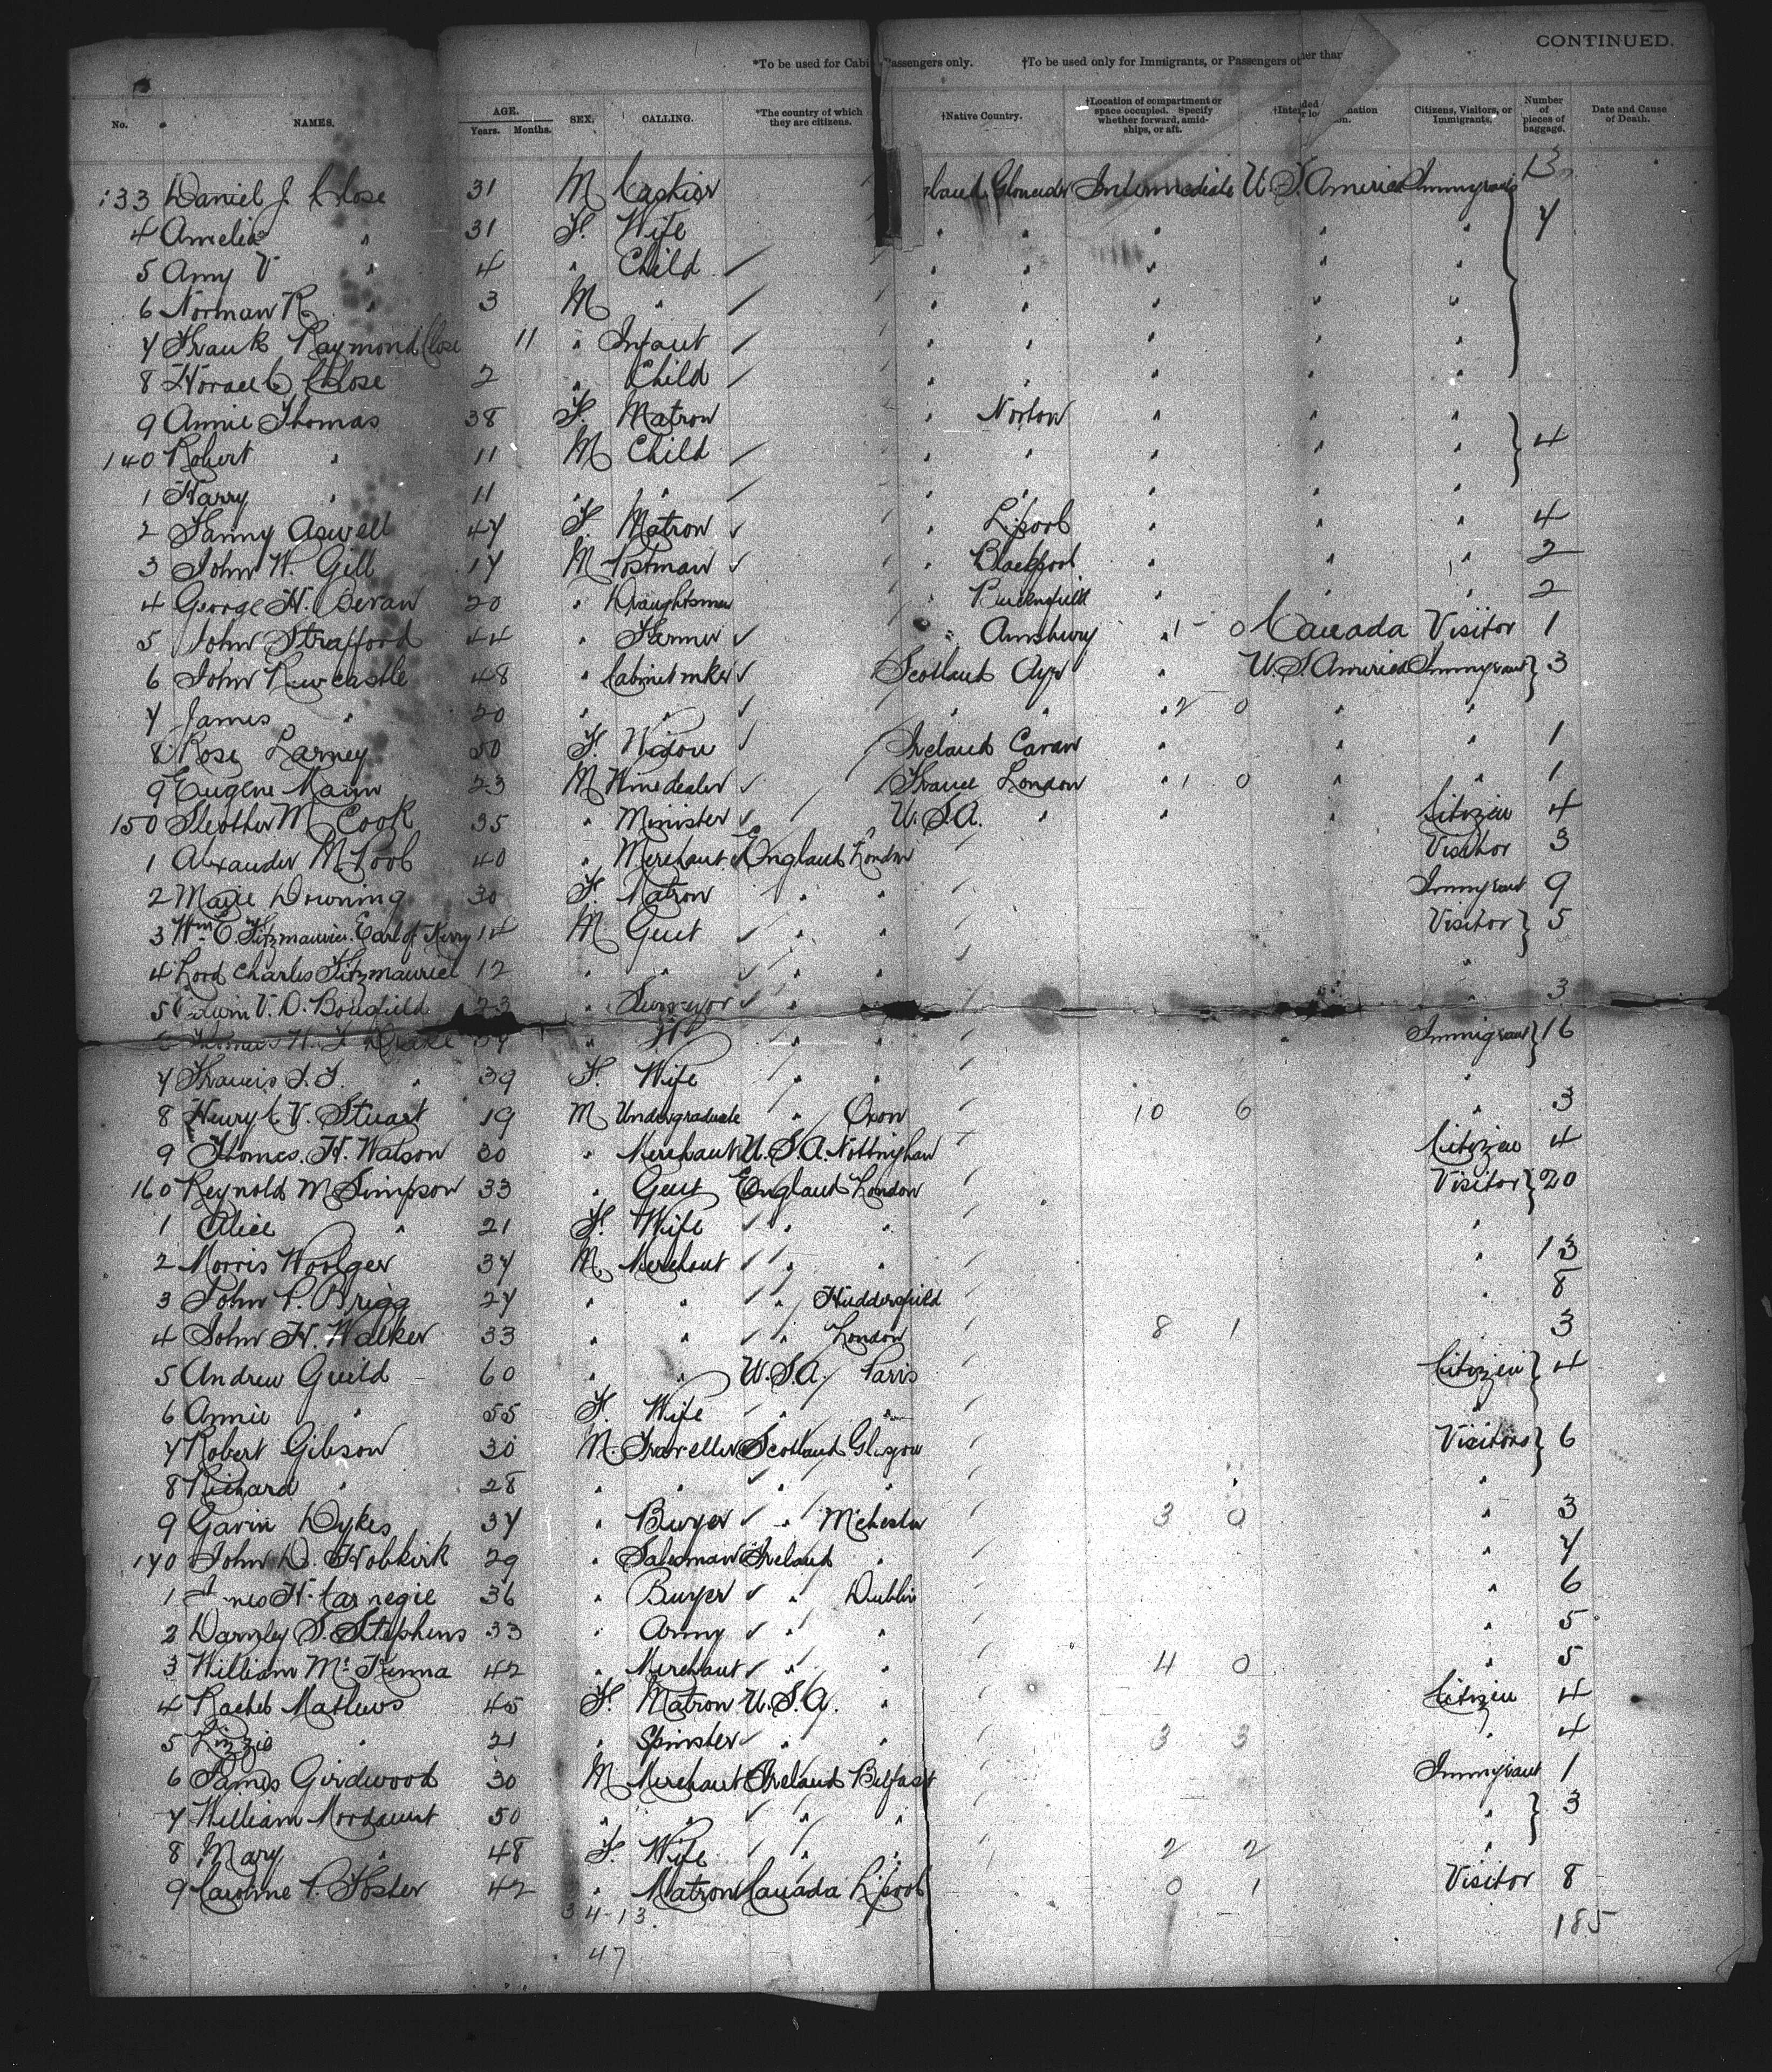 CONTINUED.
*To be used for Cabi Passengers only. †To be used only for Immigrants, or Passengers other than
No. NAMES. AGE. Years. Months. SEX. CALLING. *The country of which they are citizens. †Native Country. †Location of compartment or space occupied. Specify whether forward, amidships, or aft. Citizens, Visitors, or Immigrants. Number of pieces of baggage. Date and Cause of Death.
133 Daniel J. Close 31 M Cashier Intermediate U.S. America Immigrant 13
4 Amelia " 31 F. Wife " " " " " 7
5 Amy V " 4 " Child " " " " "
6 Norman R " 3 M " " " " " "
7 Frank Raymond Close 11 " Infant " " " " "
8 Horace C Close 2 " Child " " " " "
9 Annie Thomas 38 F. Matron " Norton " " "
140 Robert " 11 M Child " " " " " 4
1 Harry " 11 " " " " " " "
2 Fanny Aswell 47 F. Matron " L'pool " " " 4
3 John W. Gill 17 M Postman " Blackpool " " " 2
4 George H. Bevan 20 " Draughtsman " " " " 2
5 John Strafford 44 " Farmer " Amsbury " 1 0 Canada Visitor 1
6 John Newcastle 48 " Cabinet mker Scotland Ayr " U.S. America Immigrant 3
7 James " 20 " " " " " 2 0 " "
8 Rose Larney 50 F. Widow Ireland Cavan " " " 1
9 Eugene Mann 23 M Winedealer France London " 1 0 " " 1
150 M Cook 35 " Minister U.S.A. " " " Citizen 4
1 Alexander M Pool 40 " Merchant England London Visitor 3
2 Downing 30 F. Matron " " Immigrant 9
3 Wm. E. Fitzmaurice. Earl of Kerry 14 M Gent " " Visitor 5
4 Lord Charles Fitzmaurice 12 " " " " "
5 V. D. 23 " Surveyor " " 3
6 Thomas H. T. Drake 39 " " " " Immigrant 16
7 Francis " 39 F. Wife " " "
8 Henry C. V. Stuart 19 M Undergraduate " Oxon 10 6 " 3
9 Thomas. H. Watson 30 " Merchant U.S.A. Nottingham Citizen 4
160 Reynold M Simpson 33 " Gent England London Visitor 20
1 Alice " 21 F. Wife " " "
2 Morris Woolger 37 M Merchant " " " 13
3 John P. Brigg 27 " " " Huddersfield " 8
4 John H. Walker 33 " " " London 8 1 3
5 Andrew Guild 60 " " U.S.A. Paris Citizen 4
6 Annie " 55 F. Wife " " "
7 Robert Gibson 30 M. Traveller Scotland Glasgow Visitors 6
8 Richard " 28 " " " " "
9 Gavin Dykes 37 " Buyer " M'chester 3 0 " 3
170 John D. Hobkirk 29 " Salesman Ireland " " 7
1 H. Carnegie 36 " Buyer " Dublin " 6
2 Darnley S. Stephens 33 " Army " " " 5
3 William Mc Kenna 42 " Merchant " " 4 0 " 5
4 Rachel Mathews 45 F. Matron U.S.A. " Citizen 4
5 Lizzie " 21 " Spinster " " 3 3 " 4
6 James Girdwood 30 M Merchant Ireland Belfast Immigrant 1
7 William Mordaunt 50 " " " " " 3
8 Mary " 48 F. Wife " " 2 2 "
9 Caroline P. Foster 42 " Matron Canada L'pool 0 1 Visitor 8
34-13. 185
47